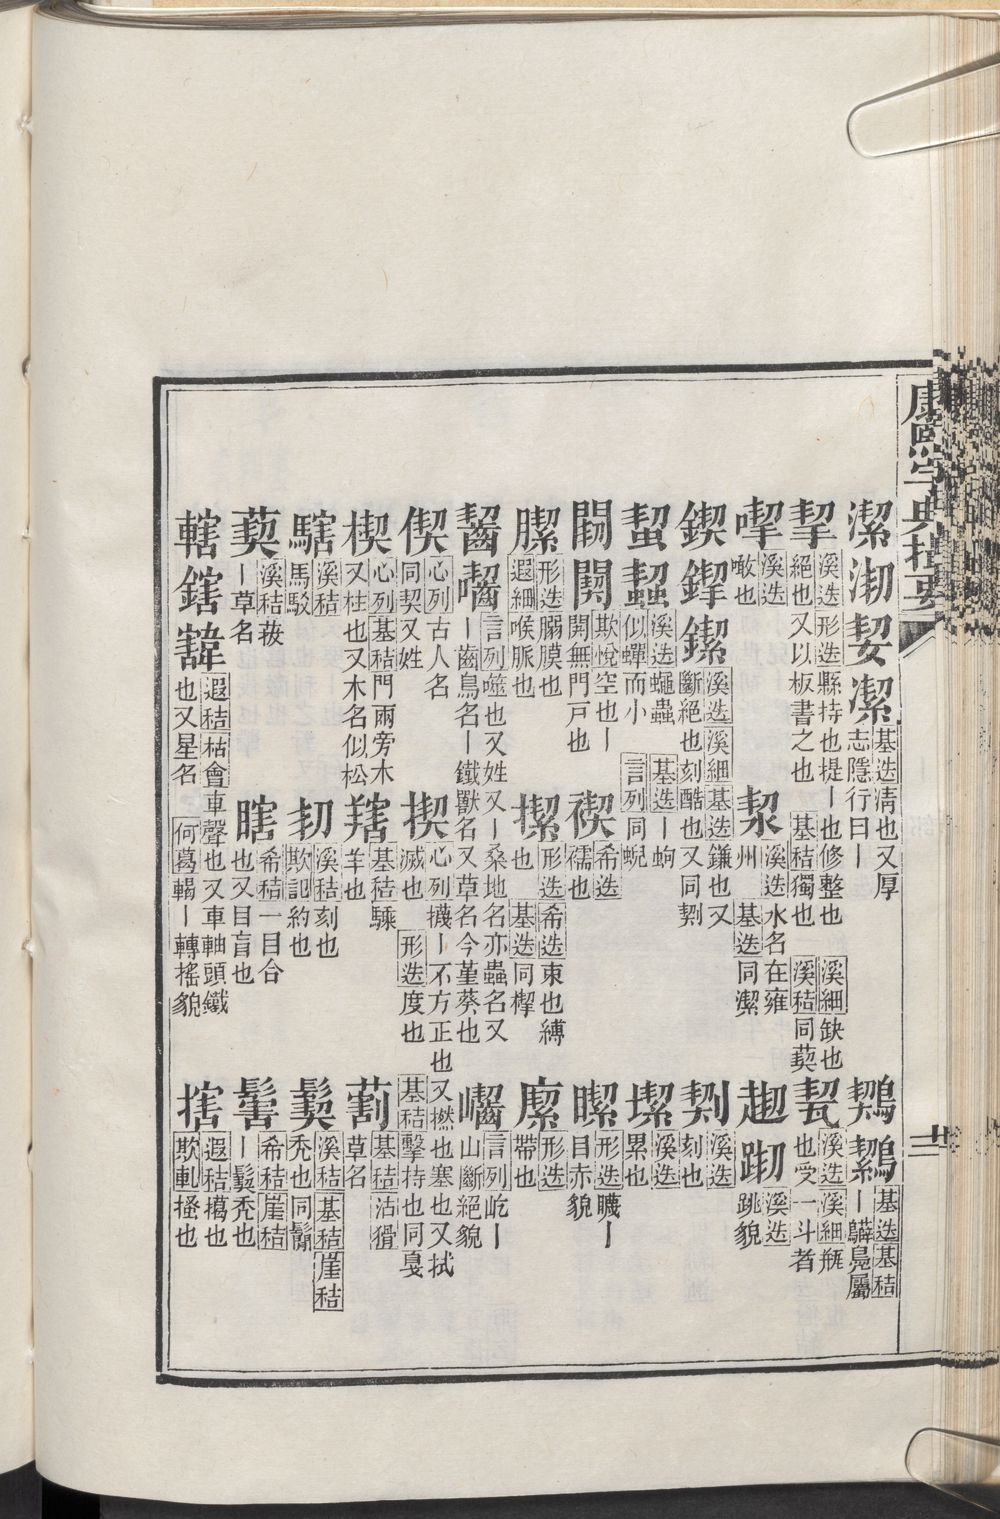 康熙字典撮要
廿三
潔㓗䂮潔基迭清也又厚志隱行曰丨
鷍鷍基迭基秸丨鷿鳧屬
挈溪迭形迭縣持也提丨也修整也溪細缺也絕也又以板書之也基秸獨也溪秸同葜
㼤溪迭溪細瓶也受一斗者
㗉溪迭噉也
洯溪迭水名在雍州基迭同潔
趔跏溪迭跳貌
鍥鍥鐭溪迭溪細基迭鎌也又斷絕也刻酷也又同㓶
㓶溪迭刻也
蛪蠽溪迭蠅蟲基迭丨蚼似蟬而小言列同蜺
㙬溪迭累也
閼闋欺悅空也丨閞無門戸也
禊希迭襦也
㬠形迭瞡丨目赤貌
䐼形迭膈膜也遐細喉脈也
㩢形迭希迭束也縛也基迭同㮮
㡜形迭帶也
齧嚙言列噬也又姓又丨桑地名亦蟲名又丨齒鳥名丨鐵獸名又草名今堇葵也
囓言列屹丨山斷絕貌
偰心列古人名同契又姓
揳心列攕丨不方正也又撚也塞也又拭滅也形迭度也基秸擊持也同戛
楔心列基秸門兩旁木又柱也又木名似松
𦎯基秸騬羊也
䓤基秸沽猾草名
䮧溪秸馬駁
㓞溪秸刻也欺記約也
鬜溪秸基秸崖秸禿也同鬝
葜溪秸菝丨草名
瞎希秸一目合也又目盲也
鬠希秸崖秸丨鬗禿也
轄鎋舝遐秸枯會車聲也又車軸頭鐵也又星名何葛轕丨轉搖貌
搳遐秸擖也欺軋搔也